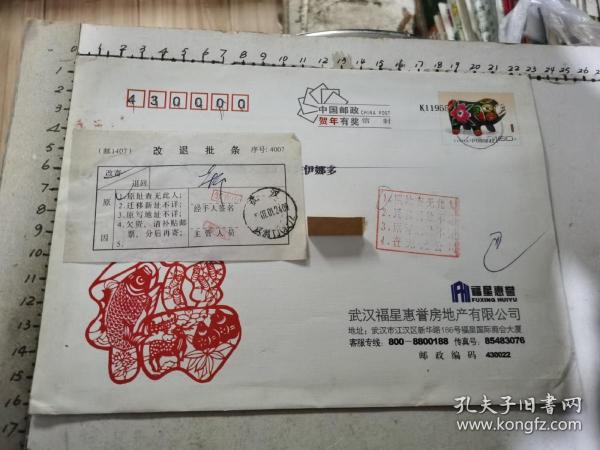 430000
中国邮政
CHINA POST
贺年有奖 信封
(邮1407) 改退批条 序号: 4007
改寄
退回
原因
1. 原址查无此人;
2. 迁移新址不详;
3. 原写地址不详;
4. 欠资, 请补贴邮票, 分后再寄。
5.
经手人签名
主管人员
伊娜多
福星惠誉
FUXING HUIYU
武汉福星惠誉房地产有限公司
地址:武汉市江汉区新华路186号福星国际商会大厦
客服专线: 800-8800188 传真号: 85483076
邮政编码 430022
孔夫子旧书网
www.kongfz.com